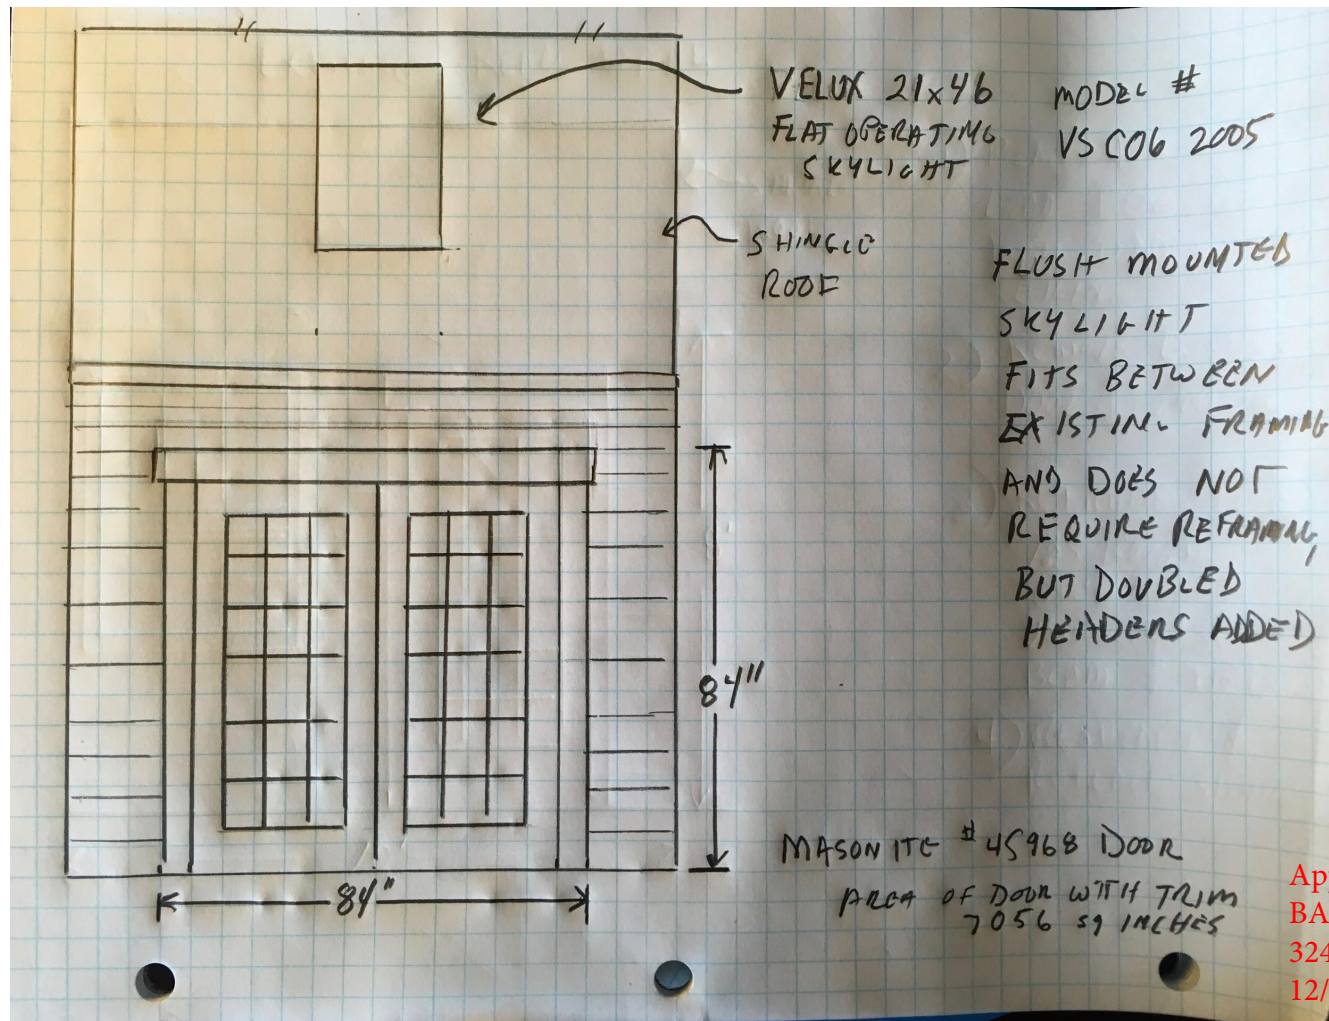 VELUX 21x46
FLAT OPERATING
SKYLIGHT
MODEL #
VS C06 2005
SHINGLE
ROOF
FLUSH MOUNTED
SKYLIGHT
FITS BETWEEN
EXISTING FRAMING
AND DOES NOT
REQUIRE REFRAMING,
BUT DOUBLED
HEADERS ADDED
84"
84"
MASONITE #45968 DOOR
AREA OF DOOR WITH TRIM
7056 SQ INCHES
Ap
BA
324
12/